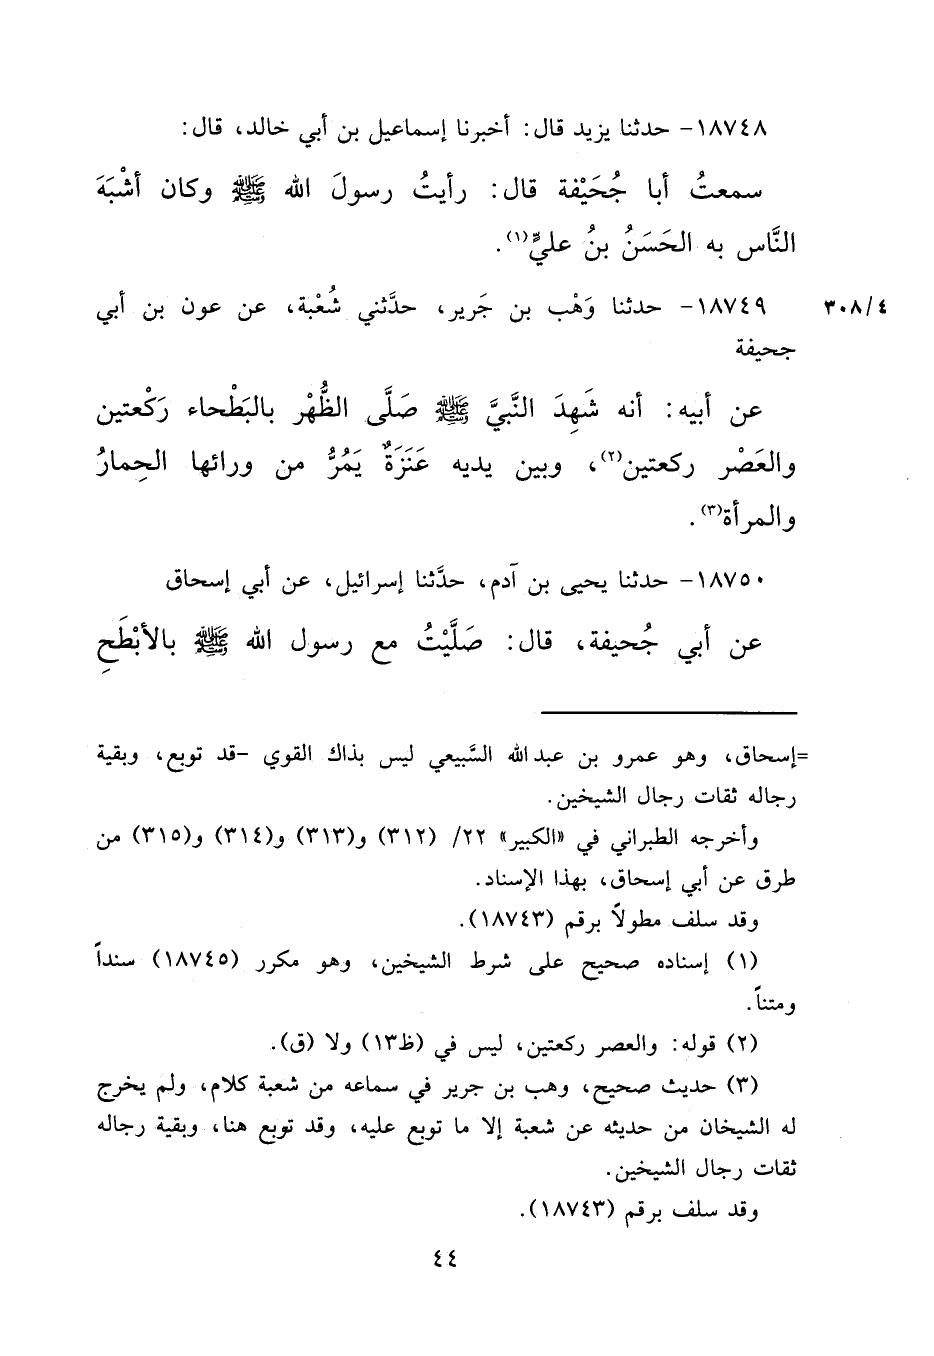 ١٨٧٤٨- حدثنا يزيد قال: أخبرنا إسماعيل بن أبي خالد، قال:
سمعتُ أبا جُحَيْفة قال: رأيتُ رسولَ الله ﷺ وكان أشْبَهَ
النَّاس به الحَسَنُ بنُ عليٍّ(١).
٣٠٨/٤ ١٨٧٤٩- حدثنا وَهْب بن جَرير، حدَّثني شُعْبة، عن عون بن أبي
جحيفة
عن أبيه: أنه شَهِدَ النَّبيَّ ﷺ صَلَّى الظُّهْر بالبَطْحاء رَكْعتين
والعَصْر ركعتين(٢)، وبين يديه عَنَزَةٌ يَمُرُّ من ورائها الحِمارُ
والمرأة(٣).
١٨٧٥٠- حدثنا يحيى بن آدم، حدَّثنا إسرائيل، عن أبي إسحاق
عن أبي جُحيفة، قال: صَلَّيْتُ مع رسول الله ﷺ بالأبْطَحِ
=إسحاق، وهو عمرو بن عبدالله السَّبيعي ليس بذاك القوي -قد توبع، وبقية
رجاله ثقات رجال الشيخين.
وأخرجه الطبراني في «الكبير» ٢٢/ (٣١٢) و(٣١٣) و(٣١٤) و(٣١٥) من
طرق عن أبي إسحاق، بهذا الإسناد.
وقد سلف مطولاً برقم (١٨٧٤٣).
(١) إسناده صحيح على شرط الشيخين، وهو مكرر (١٨٧٤٥) سنداً
ومتناً.
(٢) قوله: والعصر ركعتين، ليس في (ظ١٣) ولا (ق).
(٣) حديث صحيح، وهب بن جرير في سماعه من شعبة كلام، ولم يخرج
له الشيخان من حديثه عن شعبة إلا ما توبع عليه، وقد توبع هنا، وبقية رجاله
ثقات رجال الشيخين.
وقد سلف برقم (١٨٧٤٣).
٤٤